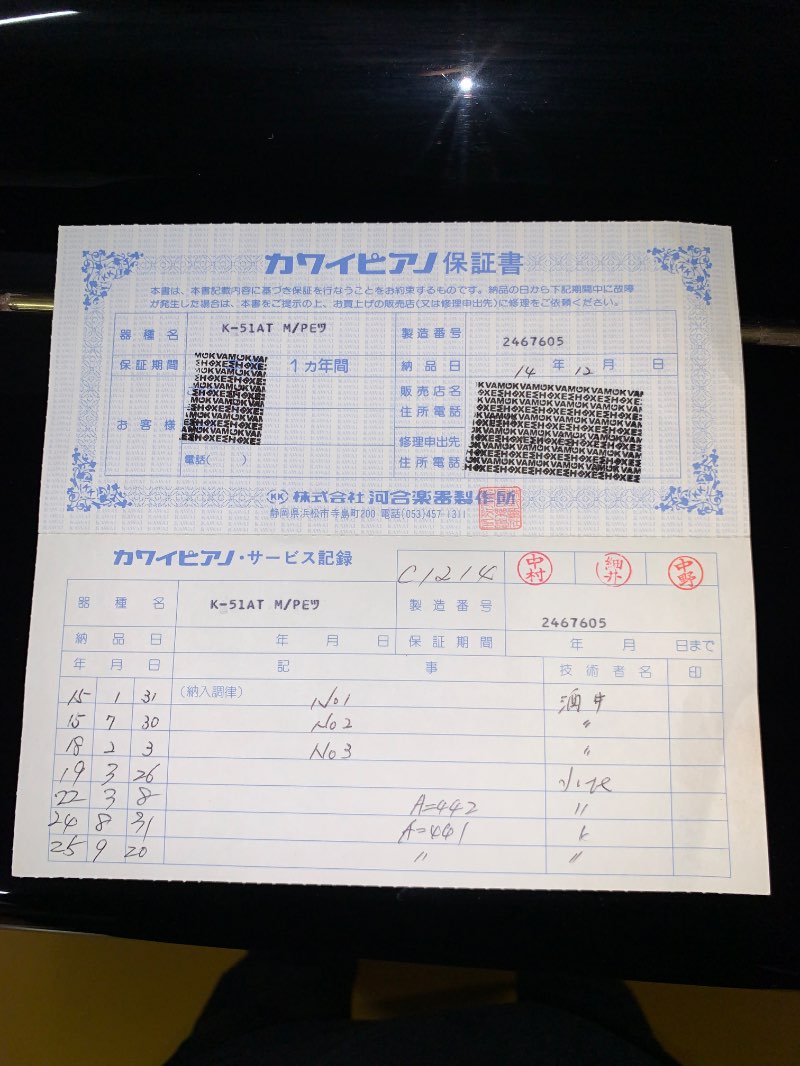 カワイピアノ 保証書
本書は、本書記載内容に基づき保証を行なうことをお約束するものです。納品の日から下記期間中に故障
が発生した場合は、本書をご提示の上、お買上げの販売店(又は修理申出先)に修理をご依頼ください。
器種名 K-51AT M/PEﾂ 製造番号 2467605
保証期間 1ヵ年間 納品日 14年 12月 日
お客様 販売店名
住所電話
修理申出先
電話( ) 住所電話
KK 株式会社 河合楽器製作所
静岡県浜松市寺島町200 電話(053)457-1311
カワイピアノ・サービス記録 C1214 中村 細井 中野
器種名 K-51AT M/PEﾂ 製造番号 2467605
納品日 年 月 日 保証期間 年 月 日まで
年 月 日 記事 技術者名 印
15 1 31 (納入調律) No1 酒井
15 7 30 No2 〃
18 2 3 No3 〃
19 3 26
22 3 8 A=442 〃
24 8 31 A=441
25 9 20 〃 〃